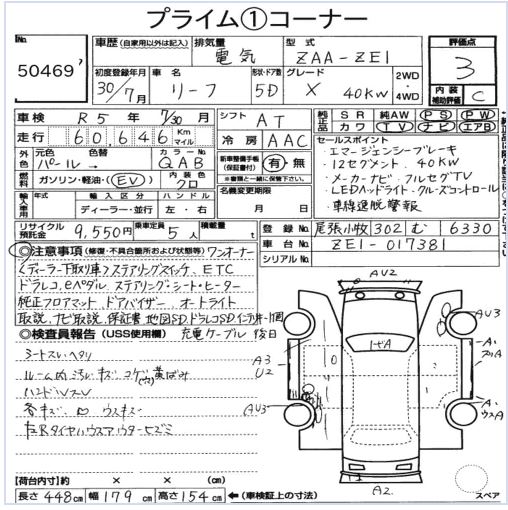 プライム①コーナー
No.
50469
車歴 (自家用以外は記入) 排気量 電気 型式 ZAA-ZE1
初度登録年月 30年7月 車名 リーフ 形状・ドア数 5D グレード X 40KW 2WD・4WD
評価点 3
内装補助評価 C
車検 R5年7/30月 シフト AT
走行 60,646 Kmマイル 冷房 AAC
純正品 SR 純AW PS PW
カワ TV ナビ エアB
外色 元色 パール→ 色替 カラーNo. QAB
燃料 ガソリン・軽油・(EV) 内装色 クロ
新車整備手帳(保証書) 有・無
※書類と一緒に保管して下さい。
輸入車用 年式 輸入区分 ハンドル
ディーラー・並行 左・右
名義変更期限 月 日
リサイクル預託金 9,550円 乗車定員 5人 積載量 t
セールスポイント
・エマージェンシーブレーキ
・12セグメント・40KW
・メーカーナビ・フルセグTV
・LEDヘッドライト・クルーズコントロール
・車線逸脱警報
登録No. 尾張小牧 302 む 6330
車台No. ZE1-017381
シリアルNo.
◎注意事項 (修復・不具合箇所および状態等) ワンオーナー
ディーラー下取り車 ステアリングスイッチ、ETC
ドラレコ、eペダル ステアリング・シートヒーター
純正フロアマット ドアバイザー オートライト
取説、ナビ取説、保証書 地図SD、ドラレコSD、インテリキー1個
◎検査員報告 (USS使用欄) 充電ケーブル 後日
シートスレ・ヘタリ
ルーム内汚れ キズ コゲ(穴) 黄ばみ
ハンドルスレ
各キズ 凹 ウスキズ
左Rタイヤハウスアウターヒズミ
AU2
AU3
A3
U2
AU3
A1
A1
A2
【荷台内寸】約 × × (cm)
長さ 448cm 幅 179cm 高さ 154cm ←(車検証上の寸法)
スペア